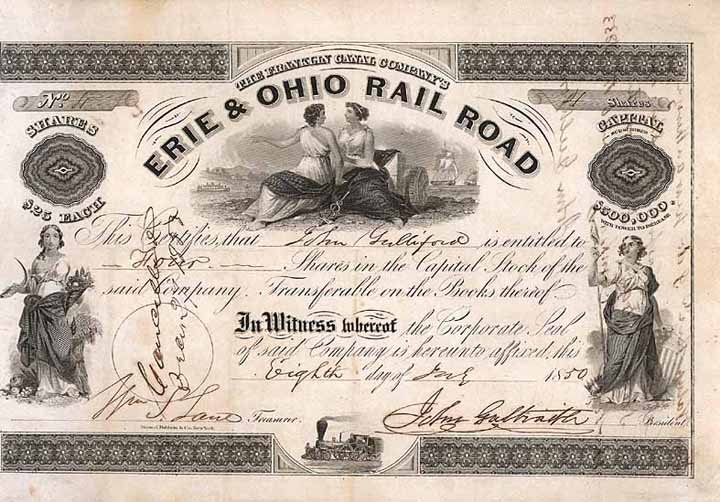 THE FRANKLIN CANAL COMPANY'S
ERIE & OHIO RAIL ROAD
No. 4
4 Shares
SHARES
$25 EACH
CAPITAL
$500,000.
WITH POWER TO INCREASE
This Certifies, that John Gulliford is entitled to
Four Shares in the Capital Stock of the
said Company. Transferable on the Books thereof
In Witness whereof the Corporate Seal
of said Company is hereunto affixed, this
Eighth day of July 1850
Cancelled
Wm. S. Lane Treasurer.
John Galbraith President